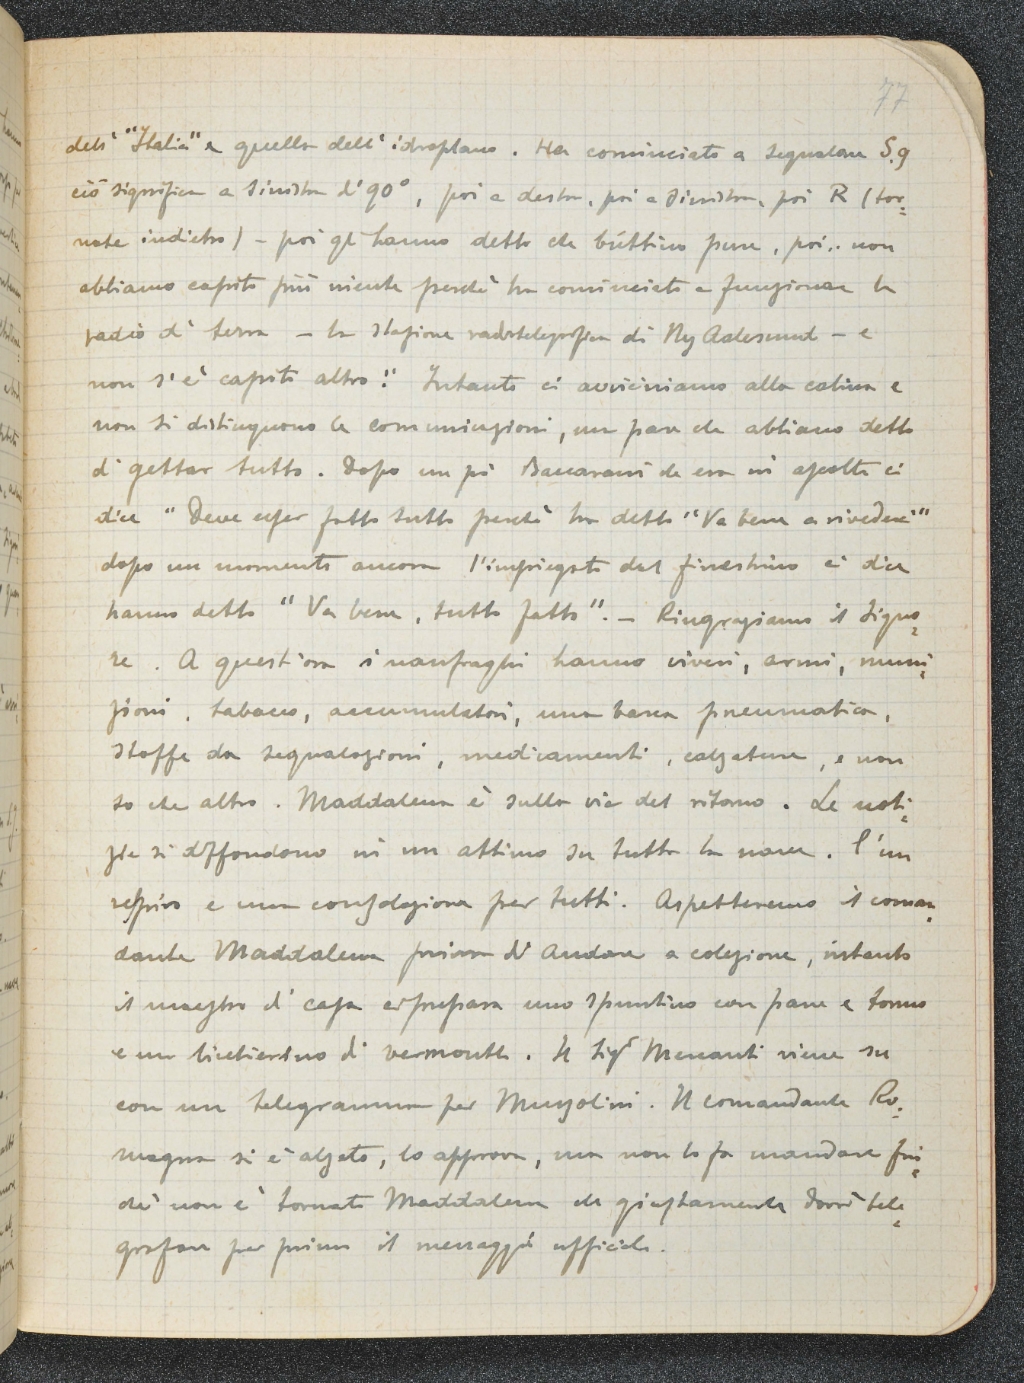 77
dell' "Italia" e quella dell' idroplano. Ha cominciato a segnalare S.9
ciò significa a sinistra d' 90°, poi a destra, poi a sinistra, poi R (tor-
nate indietro) - poi gl' hanno detto che buttino pure, poi.. non
abbiamo capito più niente perchè ha cominciato a funzionare la
radio di terra - la stazione radiotelegrafica di Ny Aalesund - e
non s'è capito altro!" Intanto ci avviciniamo alla cabina e
non si distinguono le comunicazioni, ma pare che abbiano detto
di gettar tutto. Dopo un pò Baccarani che era in ascolto ci
dice "Deve esser fatto tutto perchè ha detto "Va bene arrivederci"
dopo un momento ancora l'impiegato dal finestrino ci dice
hanno detto "Va bene, tutto fatto". - Ringraziamo il Signo-
re. A quest'ora i naufraghi hanno viveri, armi, muni-
zioni, tabacco, accumulatori, una barca pneumatica,
stoffe da segnalazioni, medicamenti, calzature, e non
so che altro. Maddalena è sulla via del ritorno. Le noti-
zie si diffondono in un attimo su tutta la nave. È un
respiro e una consolazione per tutti. Aspetteremo il coman-
dante Maddalena prima di andare a colazione, intanto
il maestro di casa ci prepara uno spuntino con pane e tonno
e un bicchierino di vermouth. Il Sigr Menanti viene su
con un telegramma per Mussolini. Il comandante Ro-
magna si è alzato, lo approva, ma non lo fa mandare fin-
chè non è tornato Maddalena che giustamente dovrà tele-
grafare per primo il messaggio ufficiale.